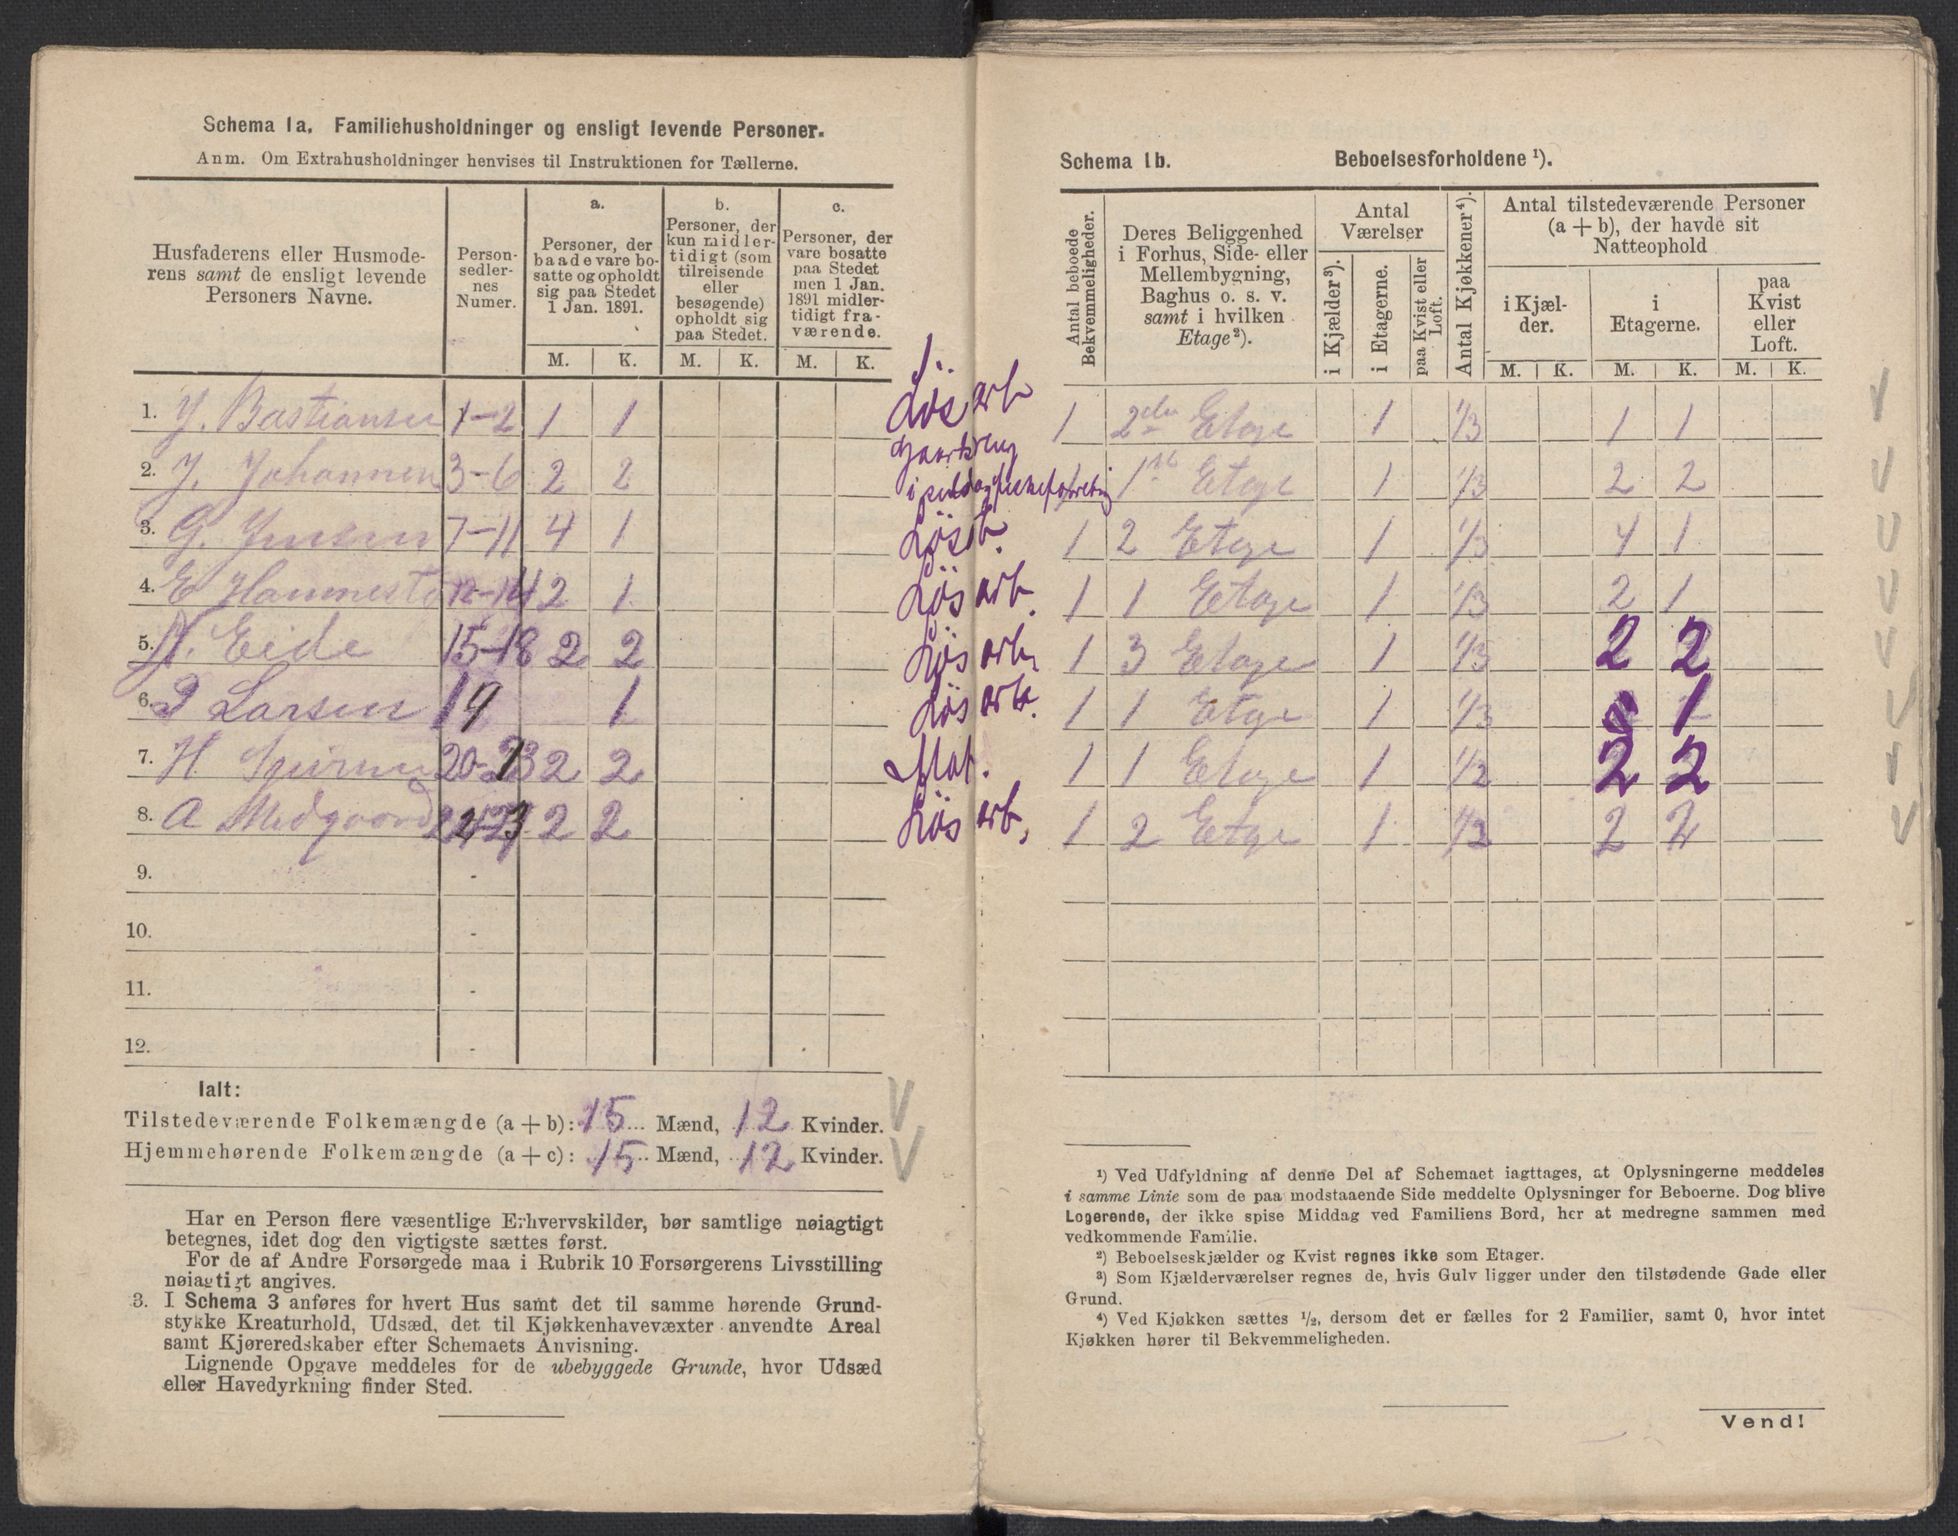 Schema 1a. Familiehusholdninger og ensligt levende Personer.
Anm. Om Extrahusholdninger henvises til Instruktionen for Tællerne.
Husfaderens eller Husmoderens samt de ensligt levende Personers Navne.
Personsedlernes Numer.
a.
Personer, der baade vare bosatte og opholdt sig paa Stedet 1 Jan. 1891.
b.
Personer, der kun midlertidigt (som tilreisende eller besøgende) opholdt sig paa Stedet.
c.
Personer, der vare bosatte paa Stedet men 1 Jan. 1891 midlertidigt fraværende.
M. K. M. K. M. K.
1. J. Bastiansen 1-2 1 1 Løs arb
2. J. Johannesen 3-6 2 2
3. G. Jensen 7-11 4 1
4. E 12-14 2 1 Løs arb.
5. Eide 15-18 2 2 Løs arb
6. Larsen 19 1 Løs arb.
7. H. 20-23 2 2 Mat.
8. A Midgaard 2 2 Løs arb.
9.
10.
11.
12.
Ialt:
Tilstedeværende Folkemængde (a + b): 15 Mænd, 12 Kvinder.
Hjemmehørende Folkemængde (a + c): 15 Mænd, 12 Kvinder.
Har en Person flere væsentlige Erhvervskilder, bør samtlige nøiagtigt
betegnes, idet dog den vigtigste sættes først.
For de af Andre Forsørgede maa i Rubrik 10 Forsørgerens Livsstilling
nøiagtigt angives.
3. I Schema 3 anføres for hvert Hus samt det til samme hørende Grund-
stykke Kreaturhold, Udsæd, det til Kjøkkenhavevæxter anvendte Areal
samt Kjøreredskaber efter Schemaets Anvisning.
Lignende Opgave meddeles for de ubebyggede Grunde, hvor Udsæd
eller Havedyrkning finder Sted.
Schema 1b. Beboelsesforholdene ¹).
Antal beboede Bekvemmeligheder.
Deres Beliggenhed i Forhus, Side- eller Mellembygning, Baghus o. s. v. samt i hvilken Etage²).
Antal Værelser
i Kjælder³).
i Etagerne.
paa Kvist eller Loft.
Antal Kjøkkener⁴).
Antal tilstedeværende Personer (a + b), der havde sit Natteophold
i Kjælder.
i Etagerne.
paa Kvist eller Loft.
M. K. M. K. M. K.
1 2den Etage 1 1/3 1 1
1ste Etage 1 1/3 2 2
1 2 Etage 1 1/3 4 1
1 1 Etage 1 1/3 2 1
1 3 Etage 1 1/3 2 2
1 1 Etage 1 1/3 1
1 1 Etage 1 1/2 2 2
1 2 Etage 1 1/2 2 2
¹) Ved Udfyldning af denne Del af Schemaet iagttages, at Oplysningerne meddeles
i samme Linie som de paa modstaaende Side meddelte Oplysninger for Beboerne. Dog blive
Logerende, der ikke spise Middag ved Familiens Bord, her at medregne sammen med
vedkommende Familie.
²) Beboelseskjælder og Kvist regnes ikke som Etager.
³) Som Kjælderværelser regnes de, hvis Gulv ligger under den tilstødende Gade eller
Grund.
⁴) Ved Kjøkken sættes ½, dersom det er fælles for 2 Familier, samt 0, hvor intet
Kjøkken hører til Bekvemmeligheden.
Vend!